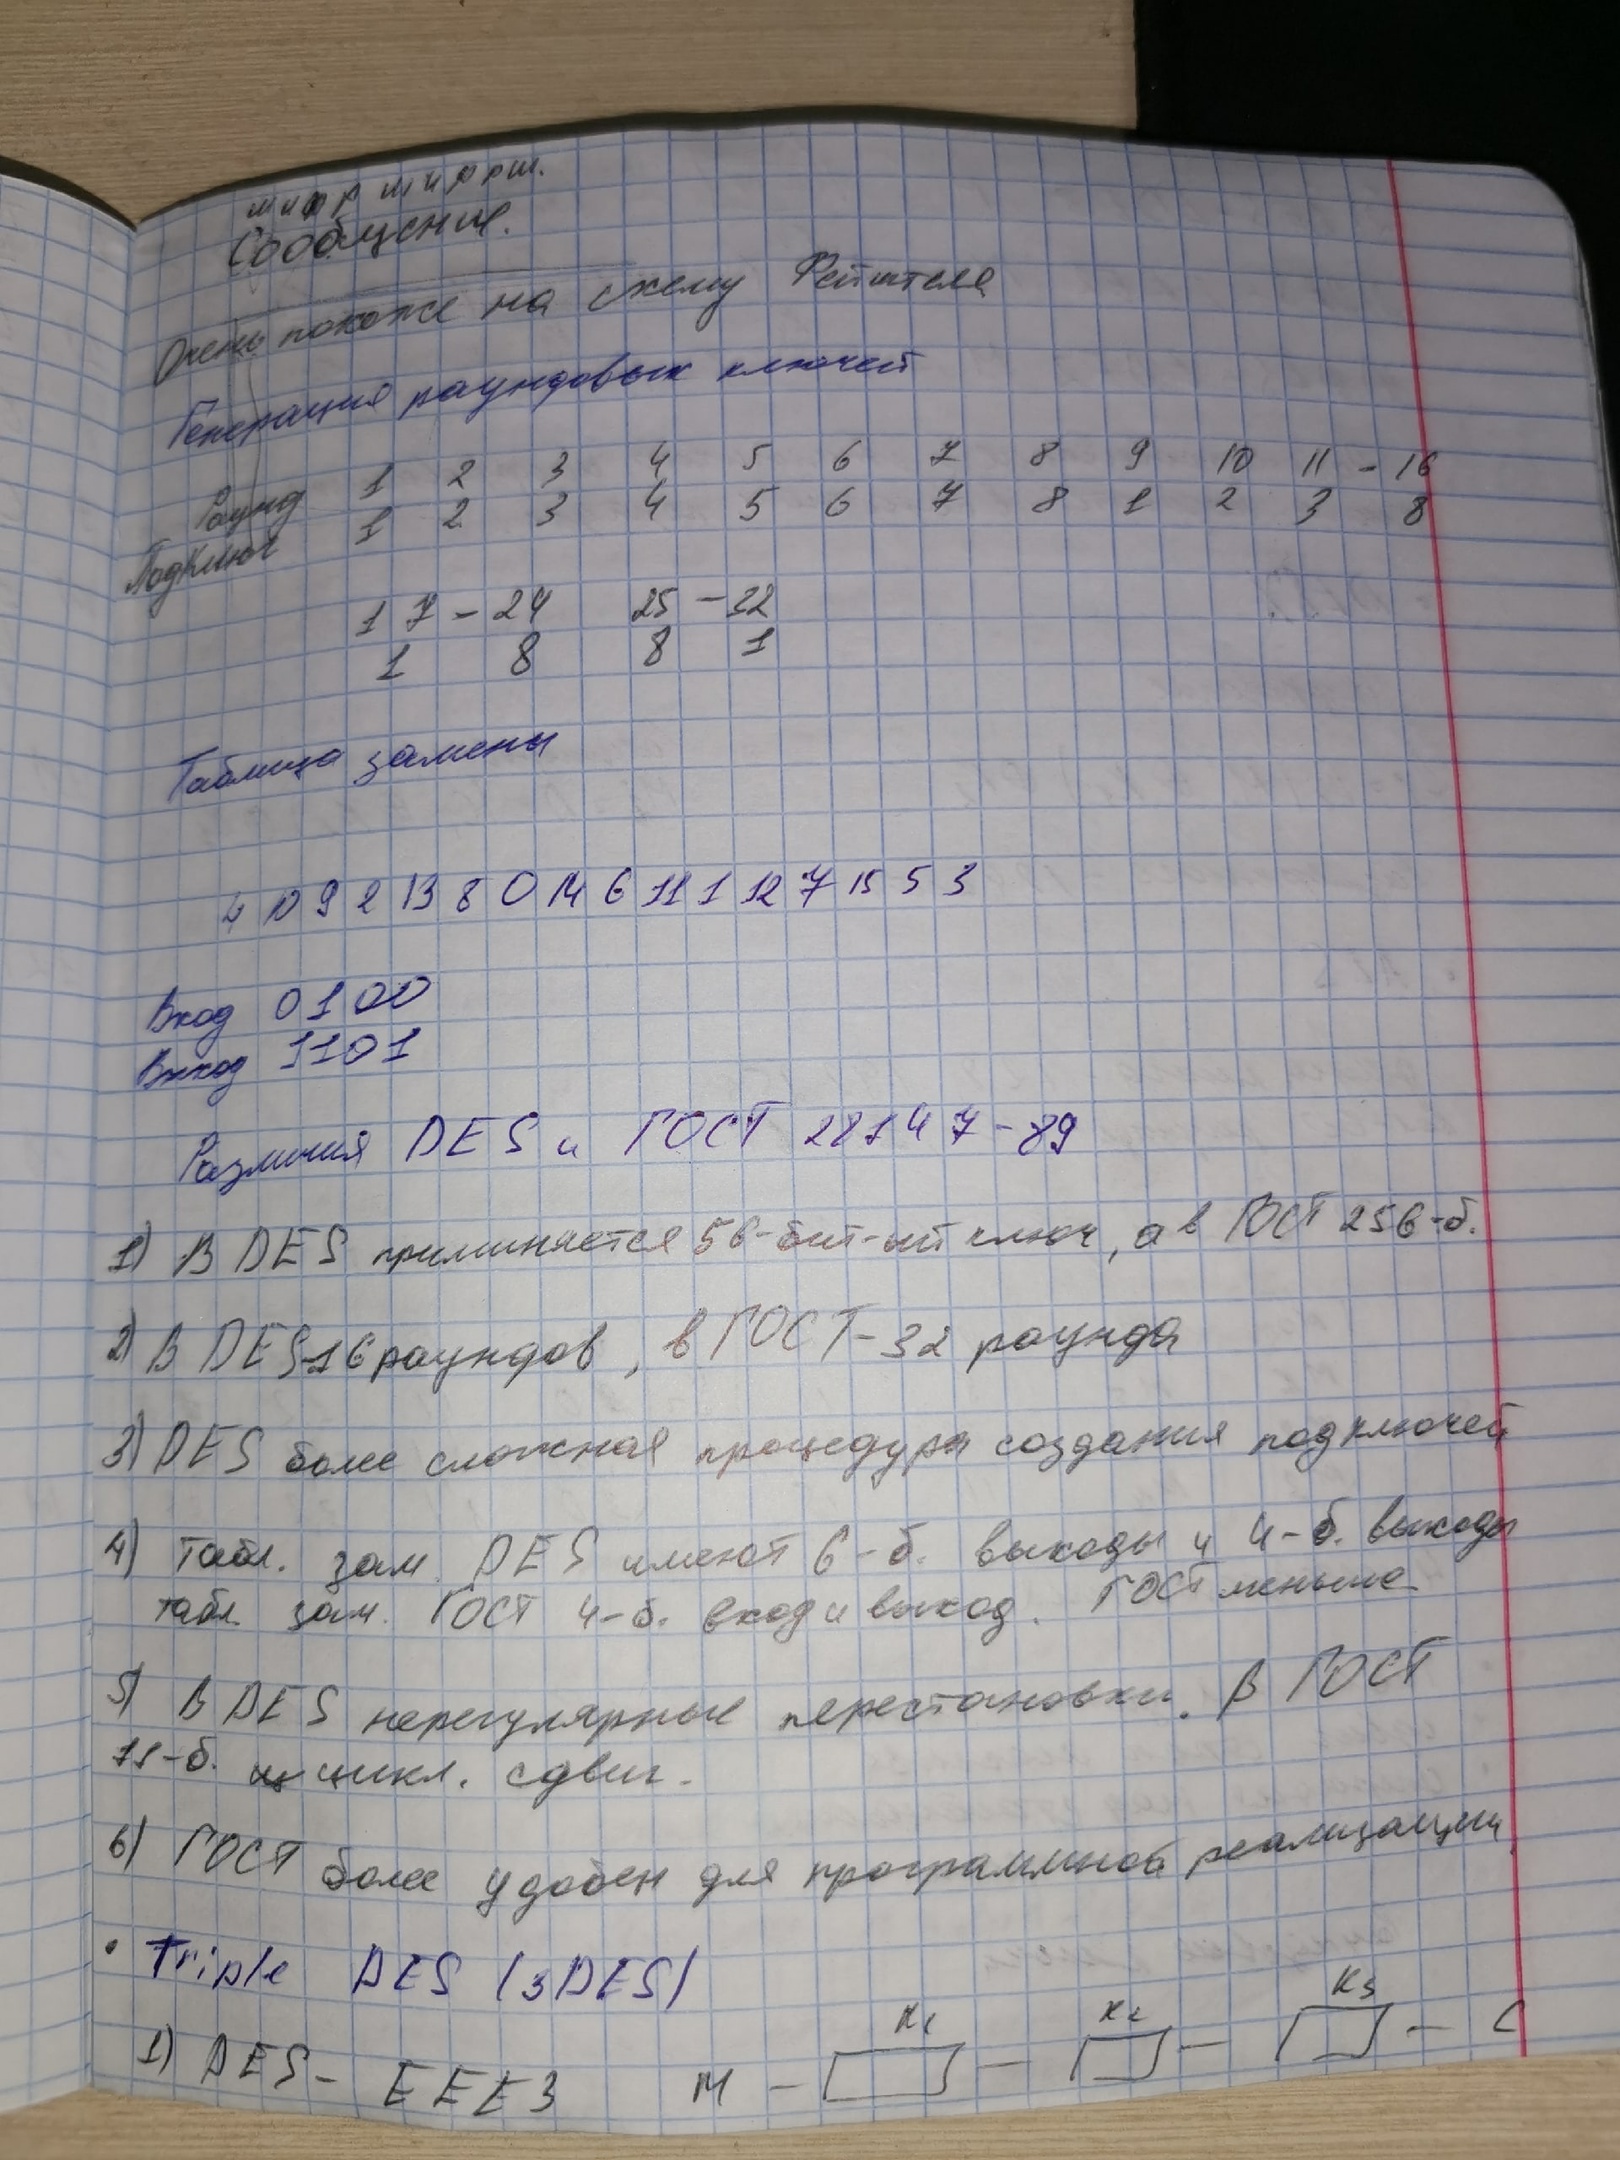 шифр шифрш.
Сообщение.
Очень похоже на схему Фейштеля
Генерация раундовых ключей
Раунд 1 2 3 4 5 6 7 8 9 10 11 - 16
Подключ 1 2 3 4 5 6 7 8 1 2 3 8
17 - 24 25 - 32
1 8 8 1
Таблица замены
4 10 9 2 13 8 0 14 6 11 1 12 7 15 5 3
Вход 0100
Выход 1101
Различия DES и ГОСТ 28147-89
1) В DES приминяется 56-бит-ый ключ, а в ГОСТ 256-б.
2) В DES-16 раундов, в ГОСТ-32 раунда
3) DES более сложная процедура создания подключей
4) Табл. зам. DES имеют 6-б. выходы и 4-б. выходы
табл. зам. ГОСТ 4-б. вход и выход. ГОСТ меньше
5) В DES нерегулярные перестановки. В ГОСТ
11-б. цикл. сдвиг.
6) ГОСТ более удобен для программной реализации
• Triple DES (3DES)
K1 K2 K3
1) DES - EEE3 M - - - - C